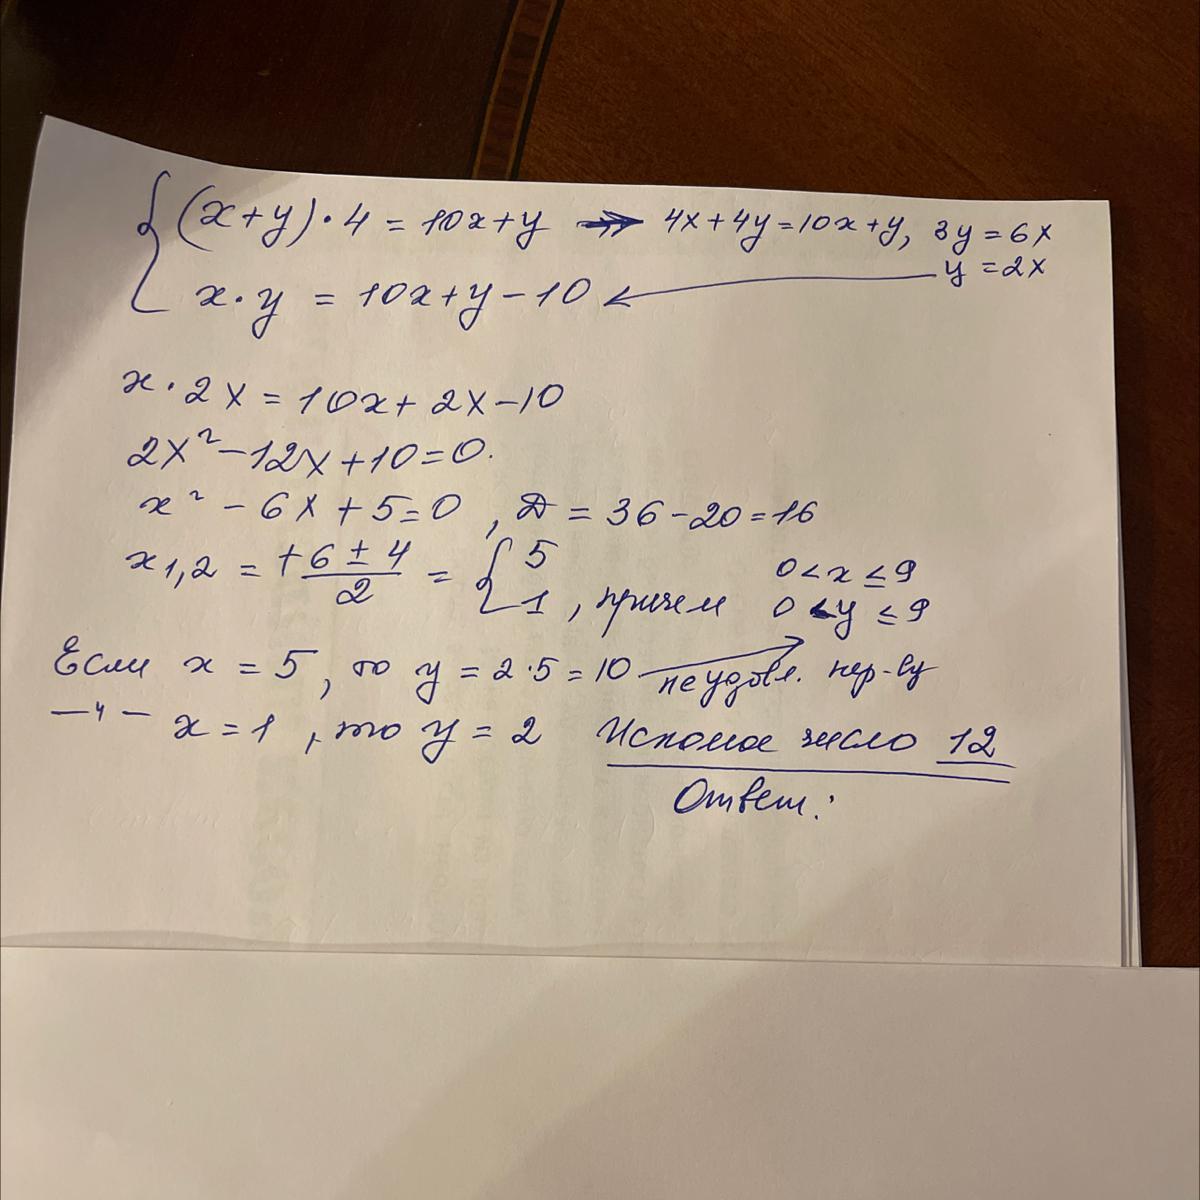 (x+y)·4 = 10x+y → 4x+4y=10x+y, 3y=6x
y=2x
x·y = 10x+y-10
x·2x=10x+2x-10
2x²-12x+10=0.
x²-6x+5=0, D=36-20=16
x1,2 = +6±4/2 = {5 1, причем 0<x≤9 0<y≤9
Если x=5, то y=2·5=10 не удовл. нер-ву
—"— x=1, то y=2 Искомое число 12
Ответ: